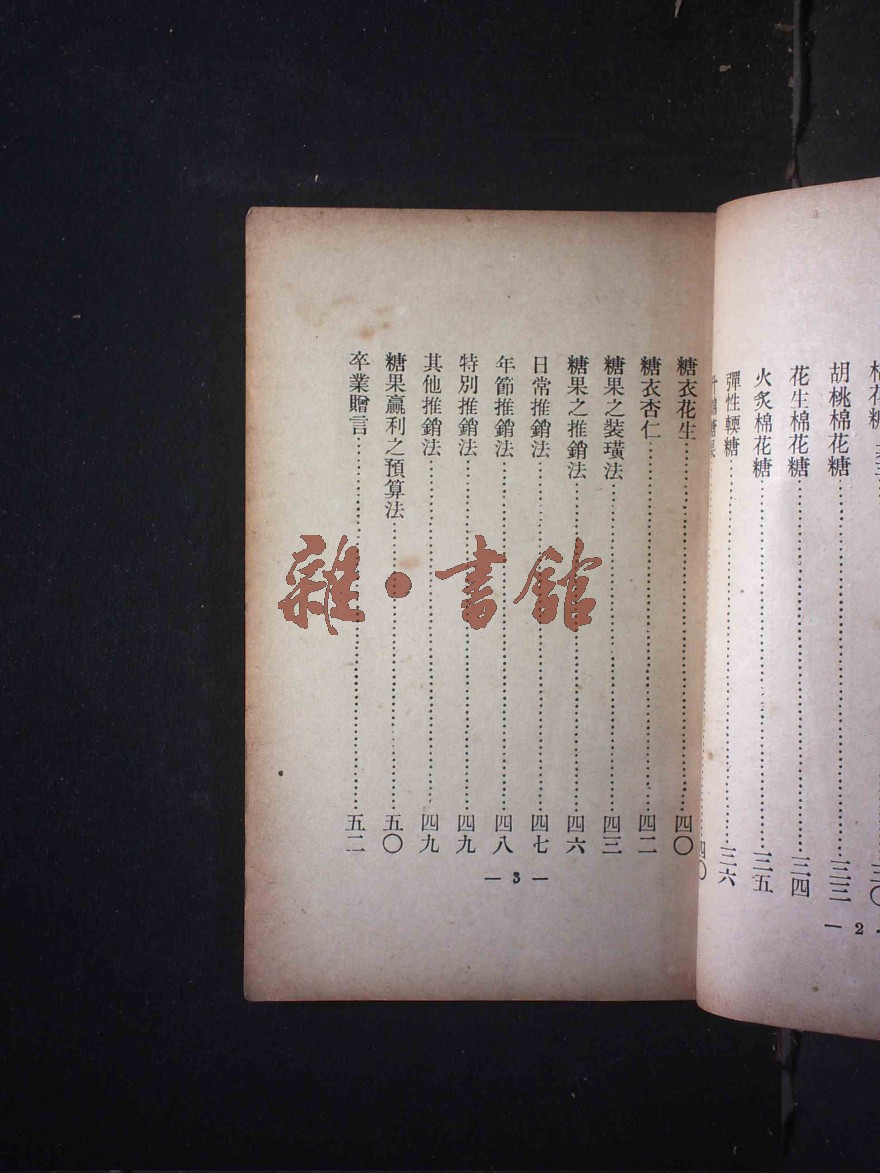 胡桃棉花糖……三三
花生棉花糖……三四
火炙棉花糖……三五
彈性輭糖……三六
四〇
— 2
糖衣花生……四〇
糖衣杏仁……四二
糖果之装璜法……四三
糖果之推銷法……四六
日常推銷法……四七
年節推銷法……四八
特別推銷法……四九
其他推銷法……四九
糖果贏利之預算法……五〇
卒業贈言……五二
— 3 —
雜·書館